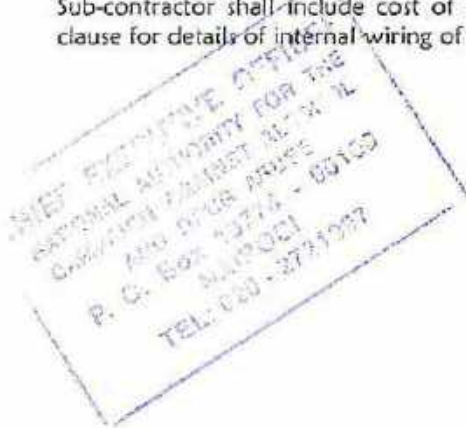 Sub-contractor shall include cost of
clause for details of internal wiring of
CHIEF EXECUTIVE OFFICER
NATIONAL AUTHORITY FOR THE
CAMPAIGN AGAINST ALCOHOL
AND DRUG ABUSE
P. O. Box - 00100
NAIROBI
TEL: 020 - 2721997